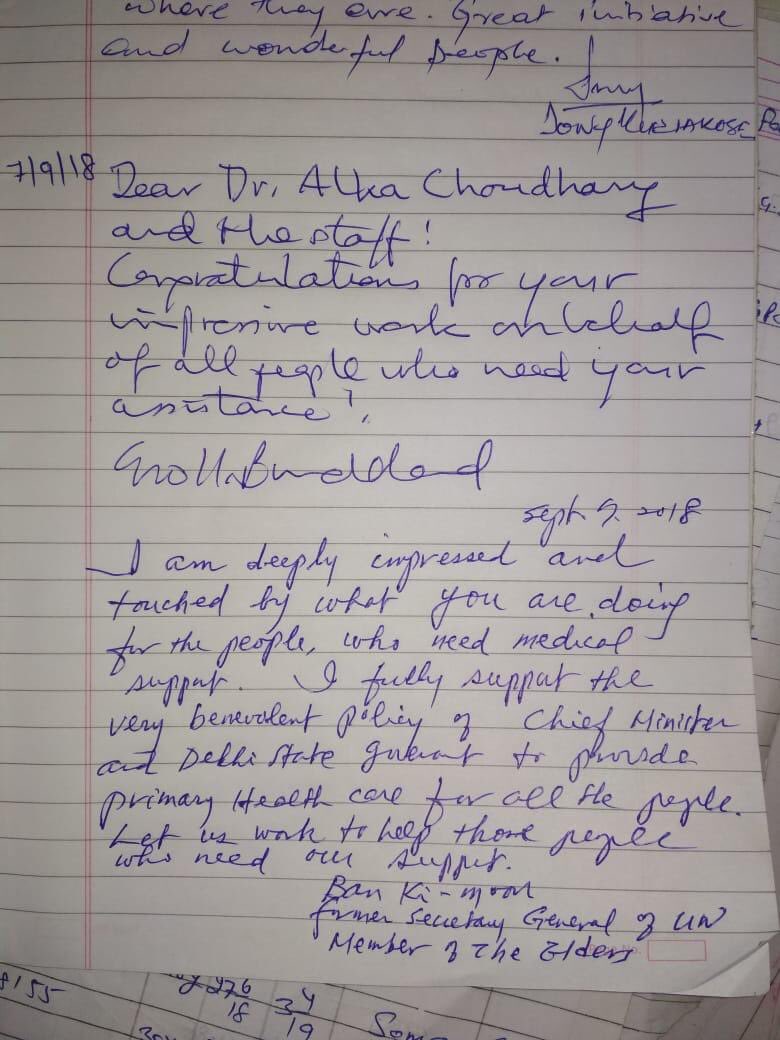 where they are. Great initiative
and wonderful people.
7/9/18 Dear Dr. Alka Choudhary
and the staff!
Congratulations for your
impressive work on behalf
of all people who need your
assistance!
Sept 9. 2018
I am deeply impressed and
touched by what you are doing
for the people, who need medical
support. I fully support the
very benevolent policy of Chief Minister
and Delhi State goverment to provide
primary Health care for all the people.
Let us work to help those people
who need our support.
Ban Ki-moon
former Secretary General of UN
Member of The Elders
8155
276
18
34
19